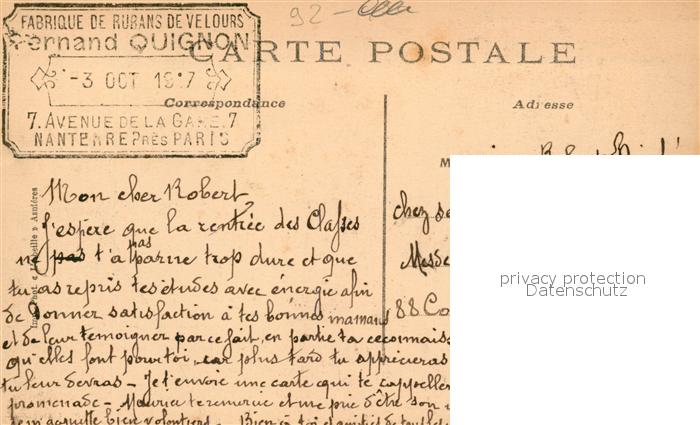 92 -
FABRIQUE DE RUBANS DE VELOURS
Fernand QUIGNON
-3 OCT 1917
7. AVENUE DE LA GARE. 7
NANTERRE PRÈS PARIS
CARTE POSTALE
Correspondance
Adresse
M
Mon cher Robert
J'espère que la rentrée des Classes
ne pas t'a pas parue trop dure et que
tu as repris tes études avec énergie afin
de donner satisfaction à tes bonnes mamans
et de leur temoigner par ce fait, en partie ta reconnais
qu'elles font pour toi, car plus tard tu apprécieras
tu leur devras - Je t'envoie une carte qui te rappeller
promenade - Maurice te remercie et me prie d'être son
bien volontiers - Bien à toi et amitiés de
chez
88 Co
privacy protection
Datenschutz